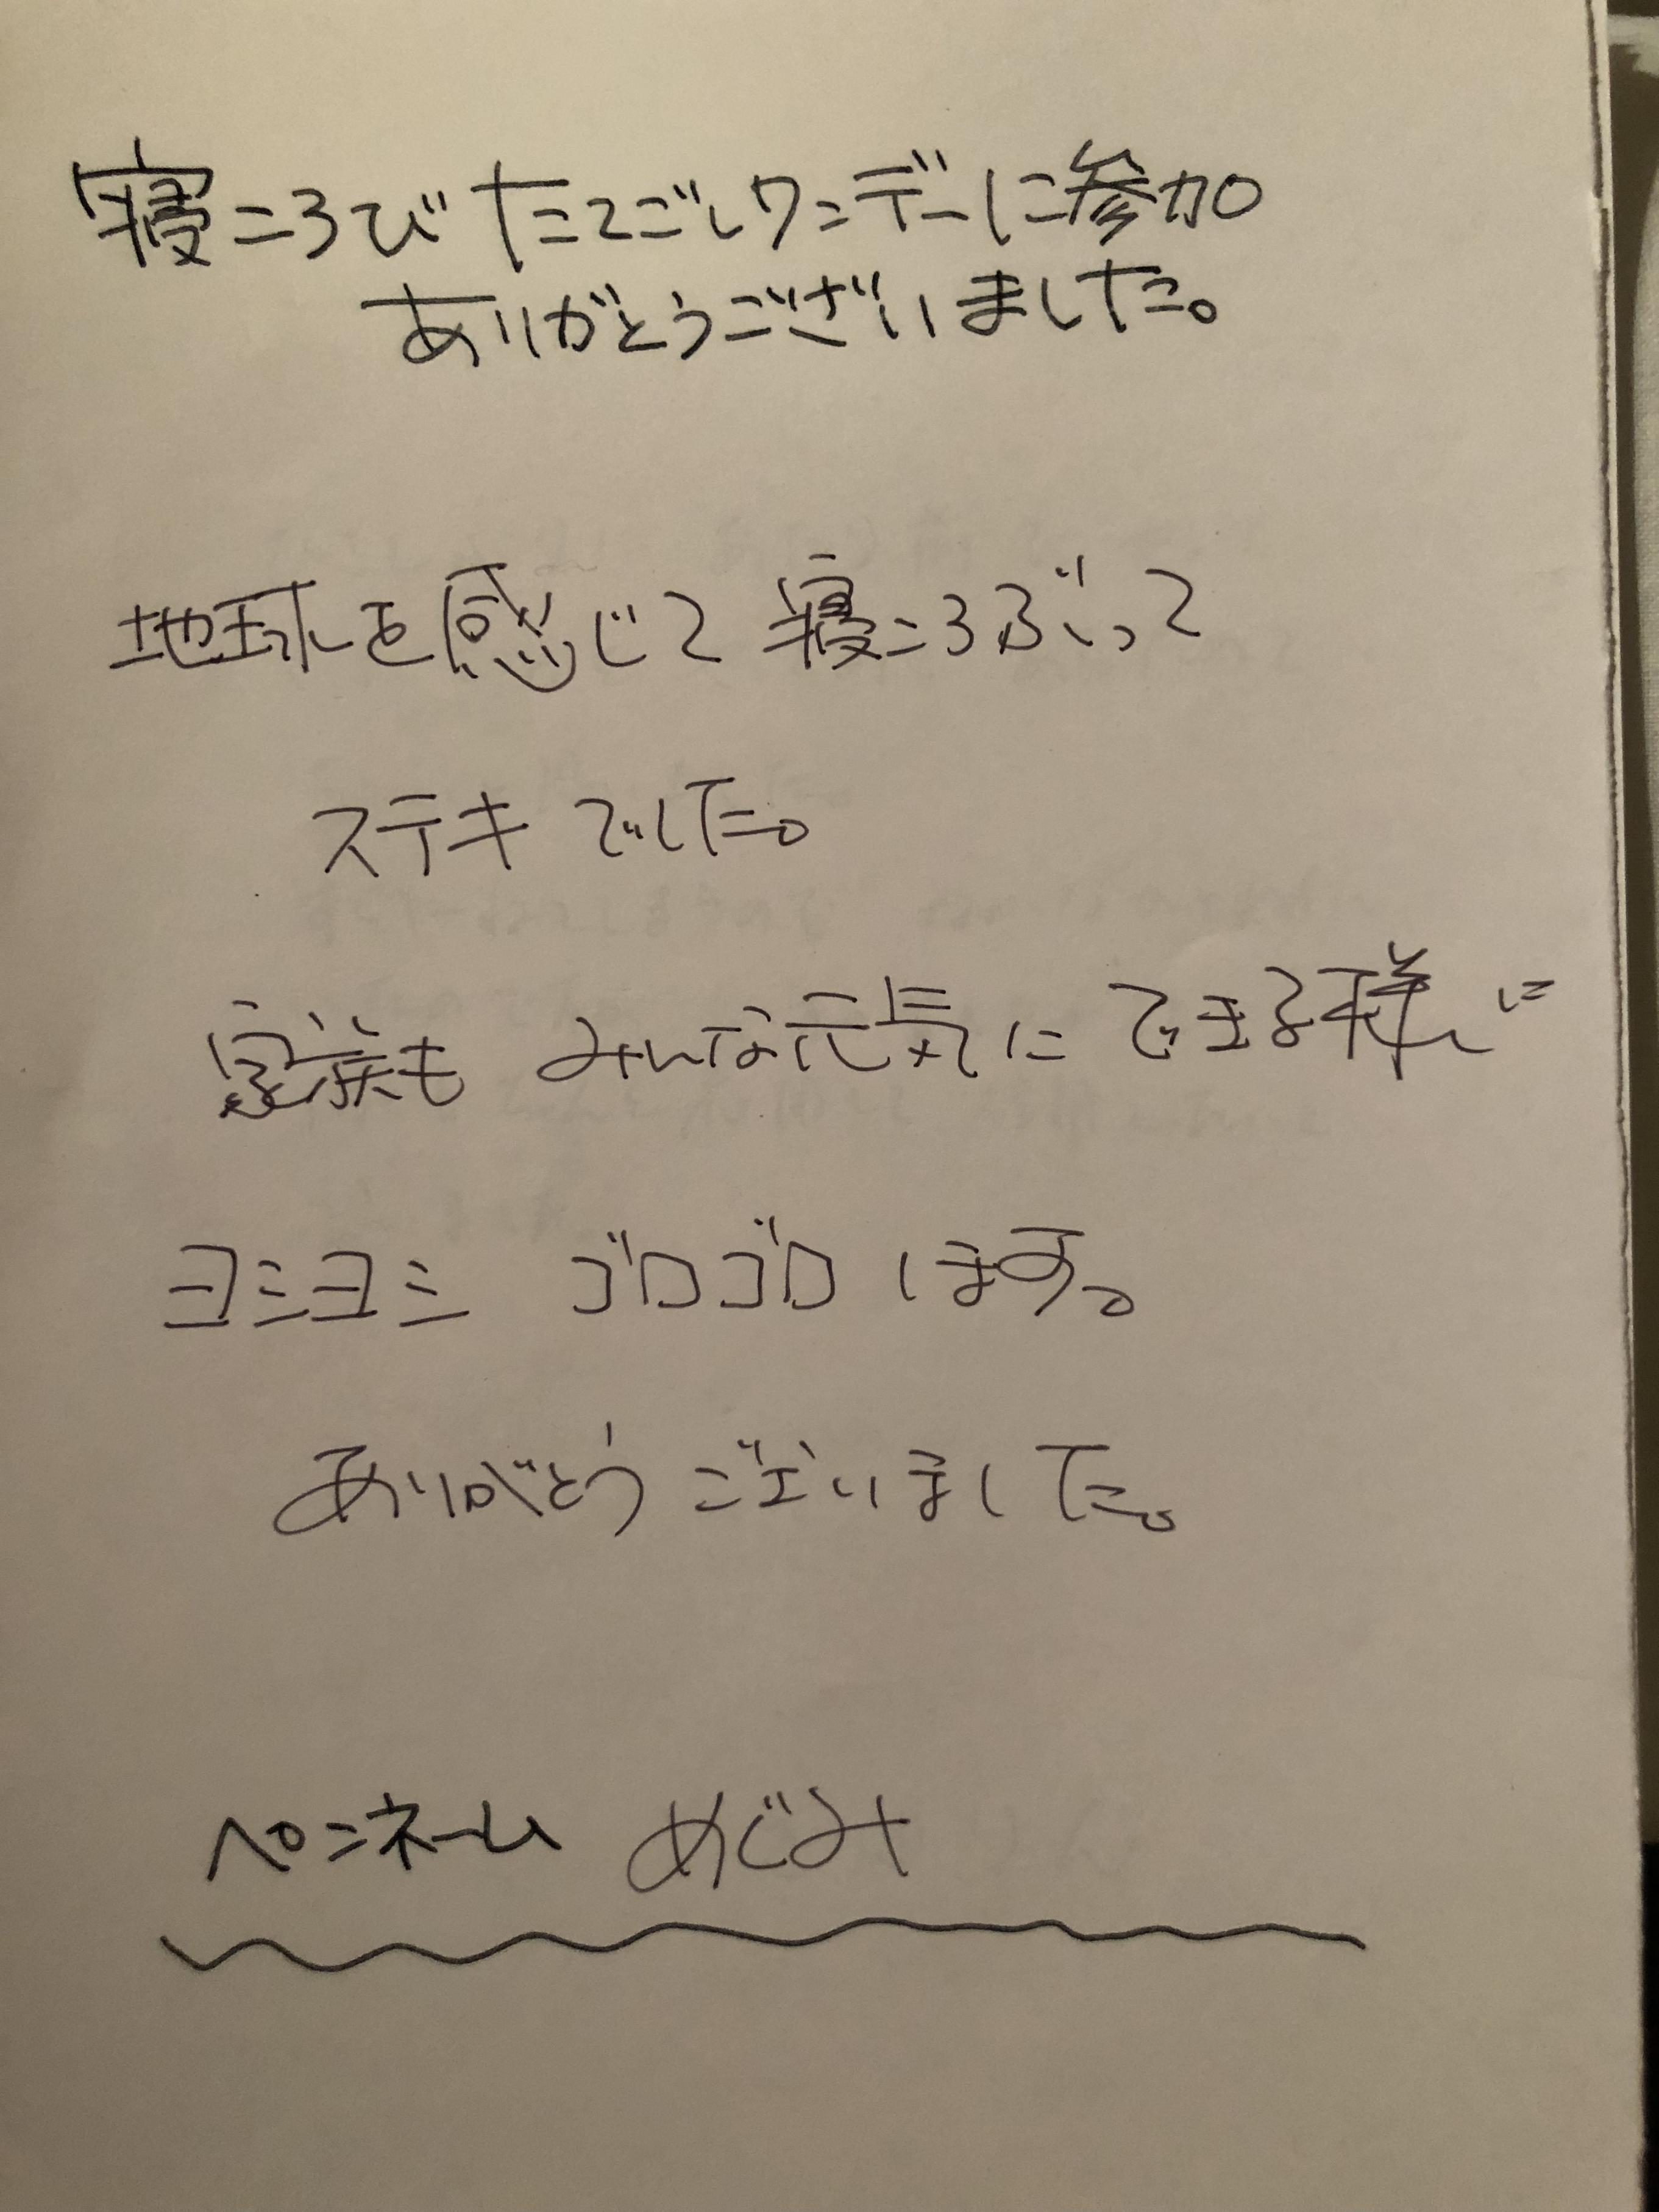 寝ころびたてごしワンデーに参加
ありがとうございました。
地球を感じて 寝ころぶって
ステキでした。
家族も みんな元気に できる様に
ヨシヨシ ゴロゴロします。
ありがとうございました。
ペンネーム めぐみ